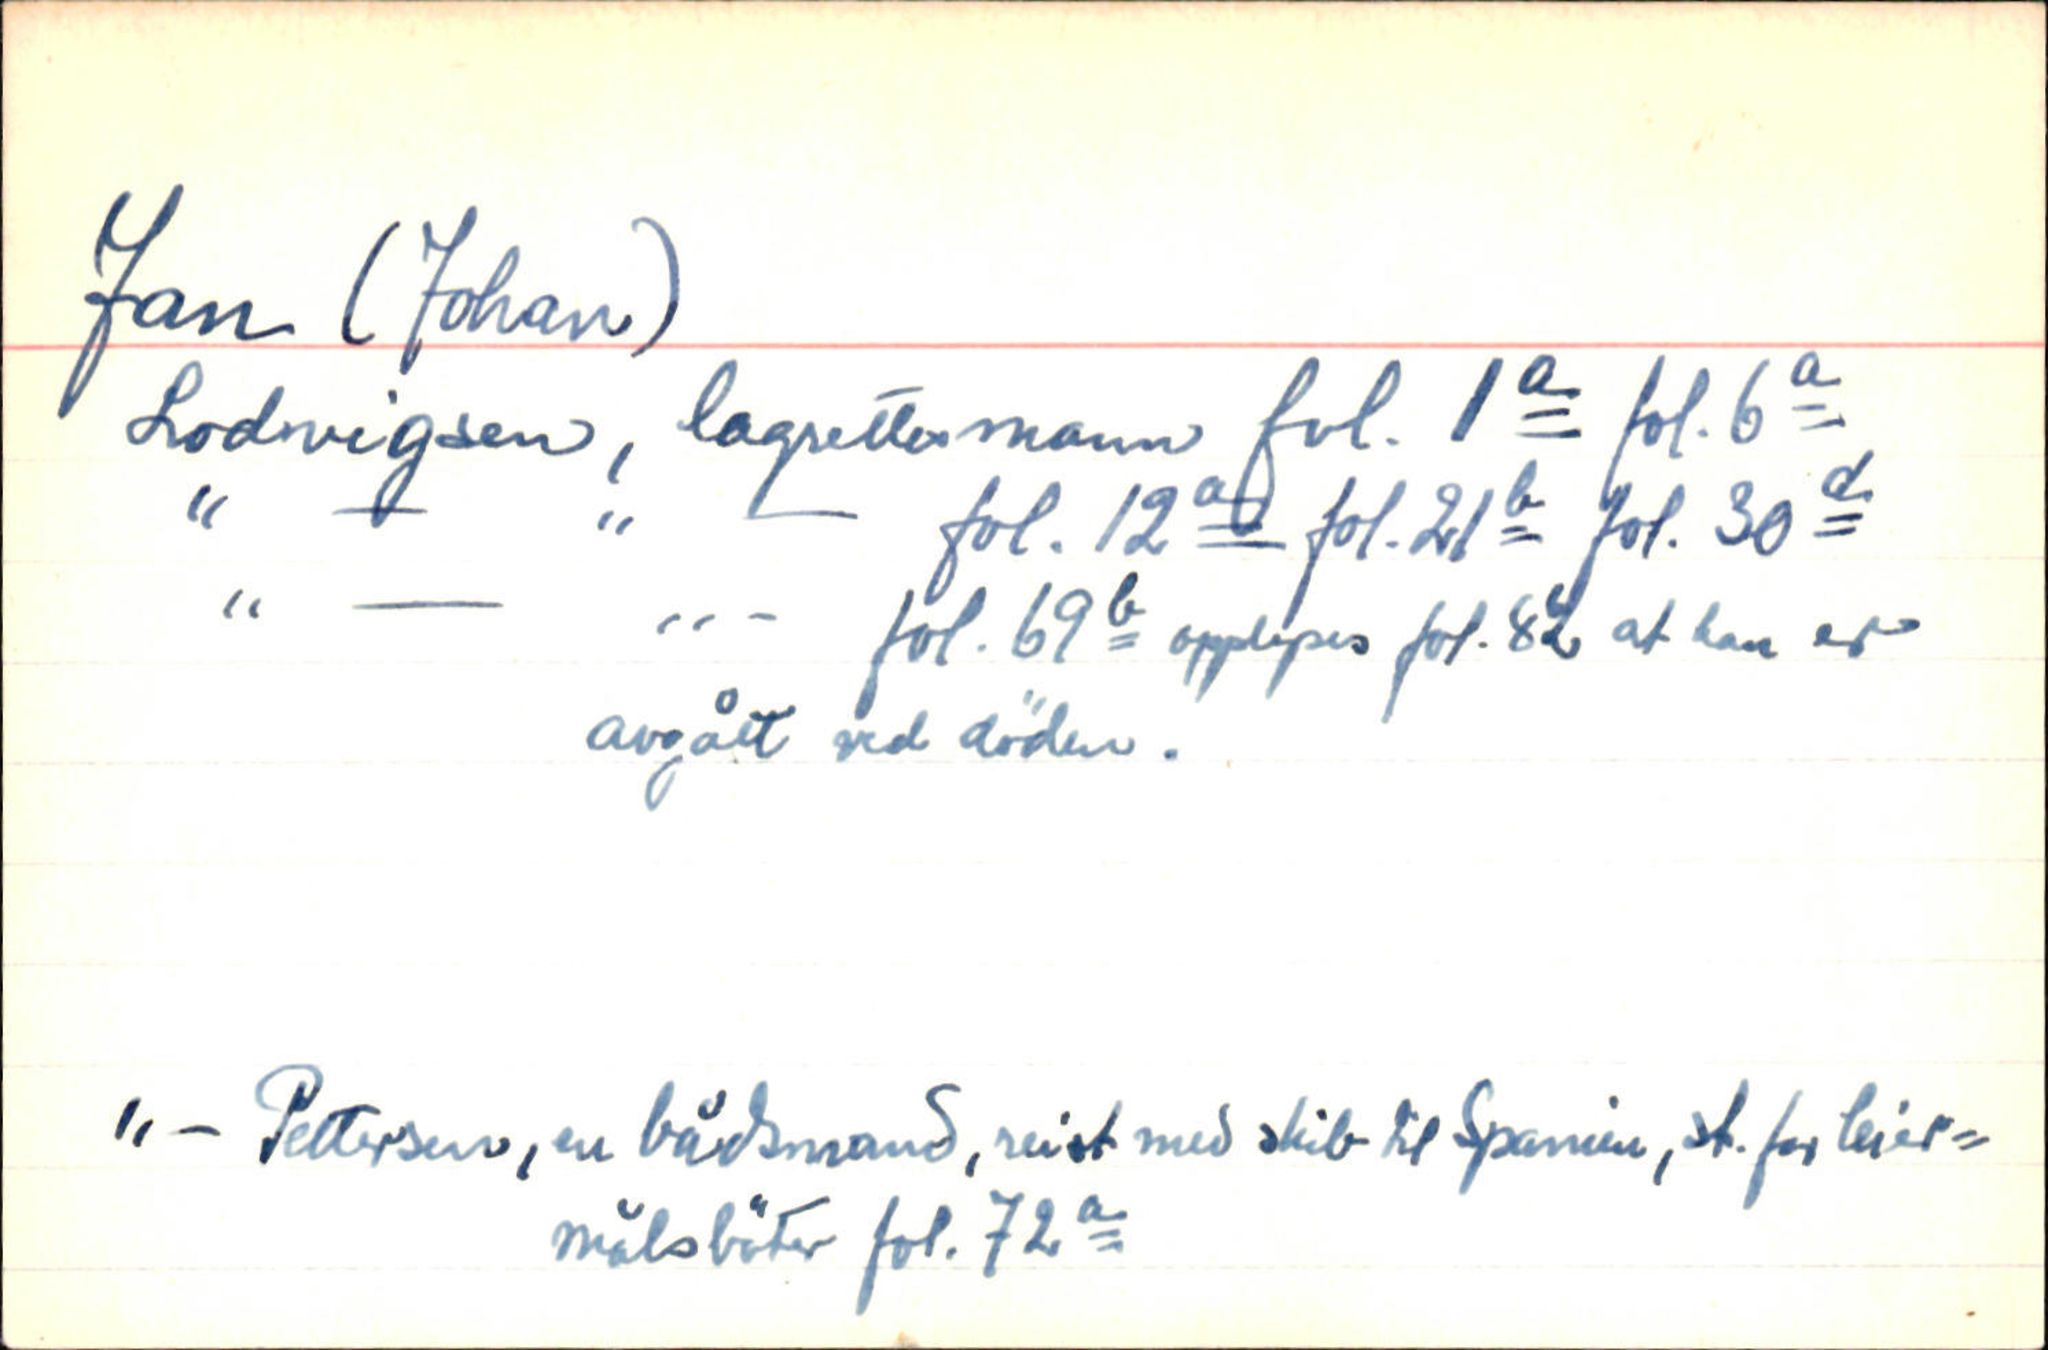 Jan (Johan)
Lodwigsen, lagrettesmann fol. 1a fol. 6a
" — " — fol. 12a fol. 21b fol. 30d
" — " - fol. 69b opplyses fol. 82 at han er
avgått ved döden.
" - Pettersen, en bådsmand, reist med skib til Spanien, st. for leier=
målsböter fol. 72a